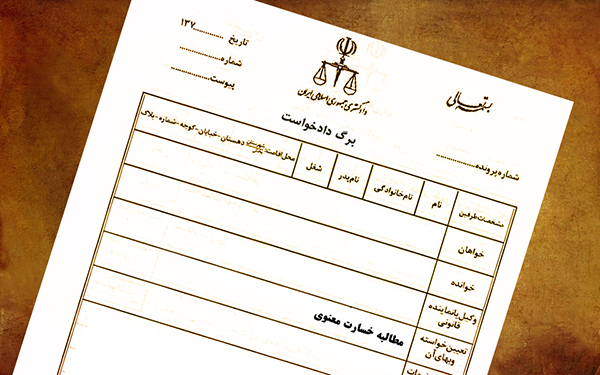 بسمه تعالی
دادگستری جمهوری اسلامی ایران
تاریخ ............۱۳۷
شماره:..............
پیوست..............
شماره پرونده..............
برگ دادخواست
مشخصات طرفین
نام
نام خانوادگی
نام پدر
شغل
محل اقامت: شهرستان-بخش-دهستان-خیابان-کوچه-شماره-پلاک
خواهان
خوانده
وکیل یا نماینده
قانونی
تعیین خواسته
وبهای آن
مطالبه خسارت معنوی